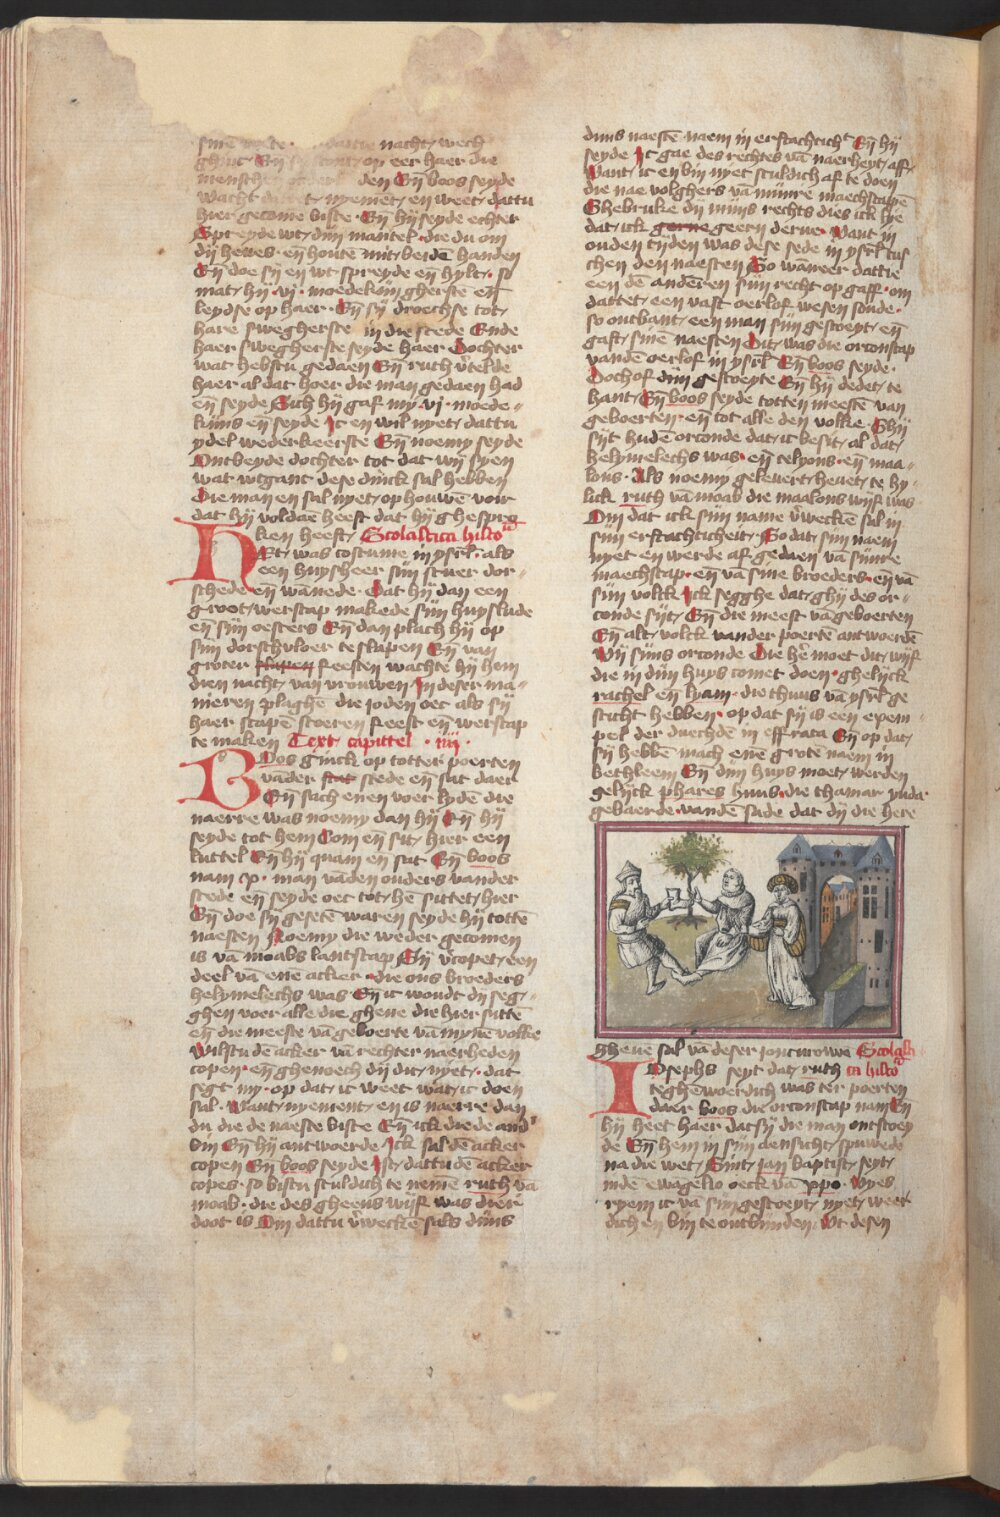 nacht wech
ghinc Eñ op eer haer die
mensch den Eñ boos seyde
wacht nyemet en weet dattu
hier gecome biste · Eñ hij seyde echter
Spreyde wt dijn mantel · die du om
dij heves · eñ houten mit beide handen
Eñ doe sij en wt spreyde eñ hylt · so
mat hij · vi · moedekijn gherste eñ
leydse op haer · Eñ sij droechse tot
hare swegherste in die stede Ende
haer swegherste seyde haer Dochter
wat hebstu gedaen Eñ ruth v̄telde
haer al dat hoer die man gedaen had
eñ seyde Sich hij gaf mij · vi · moede-
kijns eñ seyde Ic en wil nyet dattu
ydel wederkeerste Eñ noemy seyde
Ontbeyde dochter tot dat wij syen
wat wtganc dese dinck sal hebben
Die man en sal nyet ophouwē voir
dat hij voldaē heeft dat hij ghespro
ken heeft · Scolastica histo
Het was costume in ysrl · als
een huysheer sijn scuer dor-
schede eñ wānede · Dat hij dan een
groot werscap makede sijn huyslude
eñ sijn oesters Eñ dan plach hij op
sijn dorschvloer te slapen Eñ van
groter slapen feesten wachte hij hem
dien nacht van vrouwen · In deser ma-
nieren plaghē die joden oec als sij
haer scapē scoeren feest eñ werscap
te maken Text capittel · iiij ·
Boos ginck op totter poerten
vāder stat stede eñ sat daer
Eñ sach enen voer lydē die
naerre was noemy dan hij Eñ hij
seyde tot hem Com eñ sit hier een
luttel Eñ hij quam en sat Eñ boos
nam x · man vādē ouders vander
stede eñ seyde oec tot hē sittet hier
Eñ doe sij gesetē waren seyde hij tottē
naesten Noemy die weder gecomen
is vā moabs lantscap Eñ v̄copet een
deel vā ene acker · die ons broeders
helymelechs was · Eñ ic woudt dij seg-
ghen voer alle die ghene die hier sittē
eñ die meeste vā geboerte vā mynē volke
Wilstu dē acker vā rechter naerheden
copen · eñ ghenoech dij dit nyet · dat
segt my · op dat ic weet wat ic doen
sal · Want nyement en is naerre dan
du die de naeste biste Eñ ick die de and'
bin Eñ hij antwoerde Ick sal dē acker
copen Eñ boos seyde Ist dattu dē acker
copes · so bistu sculdich te nemē ruth vā
moab · die des gheens wijf was dier
doot is Om dattu v̄weckē sals dijns
dijns naestē naem in erfachtich' Eñ hij
seyde Ic gae des rechtes vā naerheyt aff
Want ic en bin nyet sculdich af te doen
die nae volghers vā mijnre maechscapē
Ghebruke dij mijns rechts dies ick lye
dat ick gerne geern derve · Want in
ouden tyden was dese sede in ysrl tus
chen den naesten So wāneer dattie
een dē anderen sijn recht op gaff · om
dattet een vast oerlof wesen soude ·
so ontbant een man sijn gescoeyt eñ
gaft sine naesten Dit was die orconscap
vandē oerlof in ysrl Eñ boos seyde ·
Doch of dijn gescoeyte Eñ hij dedet te
hant Eñ boos seyde totten meestē van
geboerten · eñ tot alle den volke · Ghij
sijt hudē orconde dat ic besit al dat
helymelechs was · eñ celyons · eñ maa-
lons · Als noemy gelevert hevet te hy-
lick ruth vā moab die maalons wijf was
Om dat ick sijn name v̄weckē sal in
sijn erfachticheit · So dat sijn naem
nyet en werde af gedaen vā sijnre
maechscap · eñ vā sine broeders · eñ vā
sijn volck Ick segghe dat ghij des or-
conde sijt · Eñ die meest vā geboerten
Eñ alt volck vander poertē antwoerdē
Wij sijns orconde Die hē' moet dit wijf
die in dijn huys comet doen · ghelijck
rachel eñ lyam · die thuus vā ysrl ge
sticht hebben · op dat sij is een exem-
pel der duechdē in effrata Eñ op dat
sij hebbē mach enē grotē naem in
bethleem Eñ dijn huys moet werden
gelijck phares huus · die thamar yuda
gebaerde · vandē sade dat dij die here
ghevē sal vā deser joncurouwē Scolasti
ca histo
Iosephs seyt dat ruth
teghēwoerdich was ter poerten
daer boos die orconscap nam Eñ
hij heet haer dat sij die man ontscoey
de Eñ hem in sijn aensicht spuwede
na die wet · Sint jan baptist seyt
indē ewāgelio oeck vā xpo · Wyes
ryem ic vā sijn gescoeyt nyet weet
dich en bin te ontbijnden · Wt desen